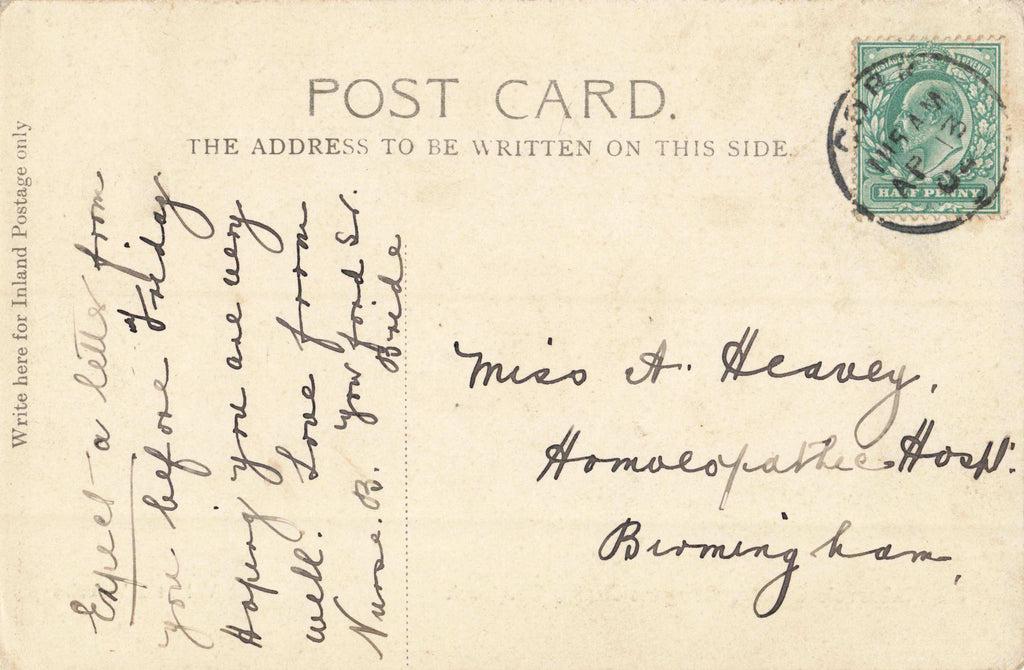 POST CARD.
THE ADDRESS TO BE WRITTEN ON THIS SIDE.
Write here for Inland Postage only
POSTAGE & REVENUE
HALF PENNY
CORK
1115 AM
AP 13
09
Expect a letter from
you before Friday
Hoping you are very
well. Love from
Nurse. B. Your fond Sr.
Bride
Miss A. Heavey,
Homoeopathic Hospl.
Birmingham,